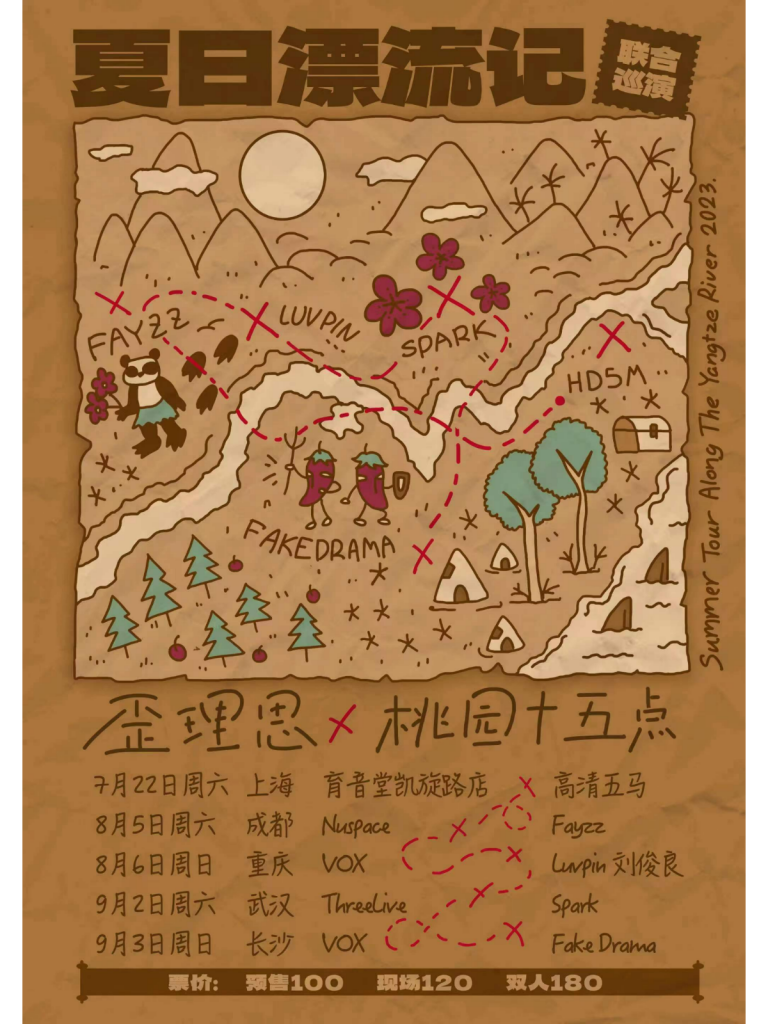 夏日漂流记
联合
巡演
FAYZZ
LUVPIN
SPARK
HD5M
FAKEDRAMA
Summer Tour Along The Yangtze River 2023.
歪理思×桃园十五点
7月22日周六 上海 育音堂凯旋路店 高清五马
8月5日周六 成都 Nuspace Fayzz
8月6日周日 重庆 VOX Luvpin 刘俊良
9月2日周六 武汉 ThreeLive Spark
9月3日周日 长沙 VOX Fake Drama
票价: 预售100 现场120 双人180